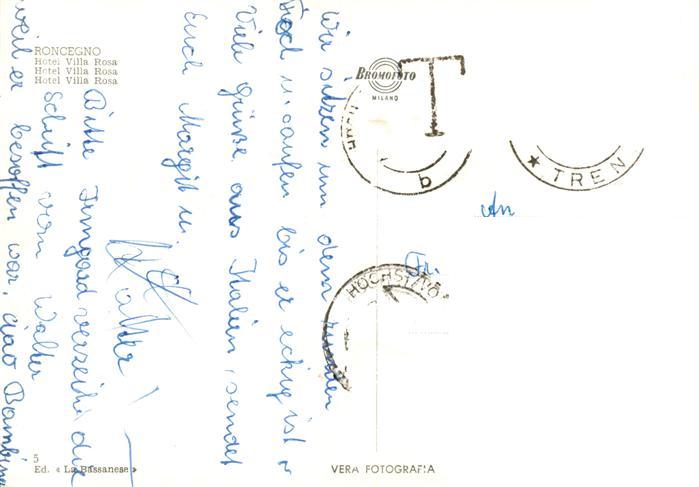 RONCEGNO
Hotel Villa Rosa
Hotel Villa Rosa
Hotel Villa Rosa
Wir sitzen um den runden
Tisch u. saufen bis er eckig ist u
Viele Grüße aus Italien, sendet
Euch Margit u.
Walter!
Bitte Irmgard verzeihe die
Schrift vom Walter
weil er besoffen war, ciao Bambina
BROMOFOTO
MILANO
T
b
TREN
An
Fr.
HÖCHSTAD
5
Ed. « La Bassanese »
VERA FOTOGRAFIA